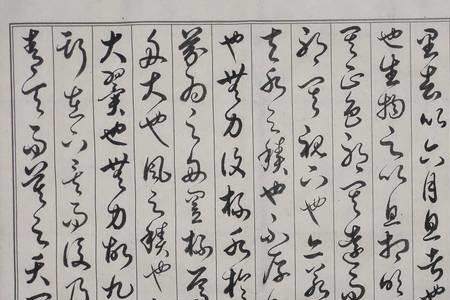 里去以六月息者也
也生物之以息相吹
其正色邪其遠而
邪其視下也亦若
夫水之積也不厚
也無力覆杯水於
芥為之舟置杯焉
舟大也風之積也
大翼也無力故九
斯在下矣而後乃
青天而莫之夭閼